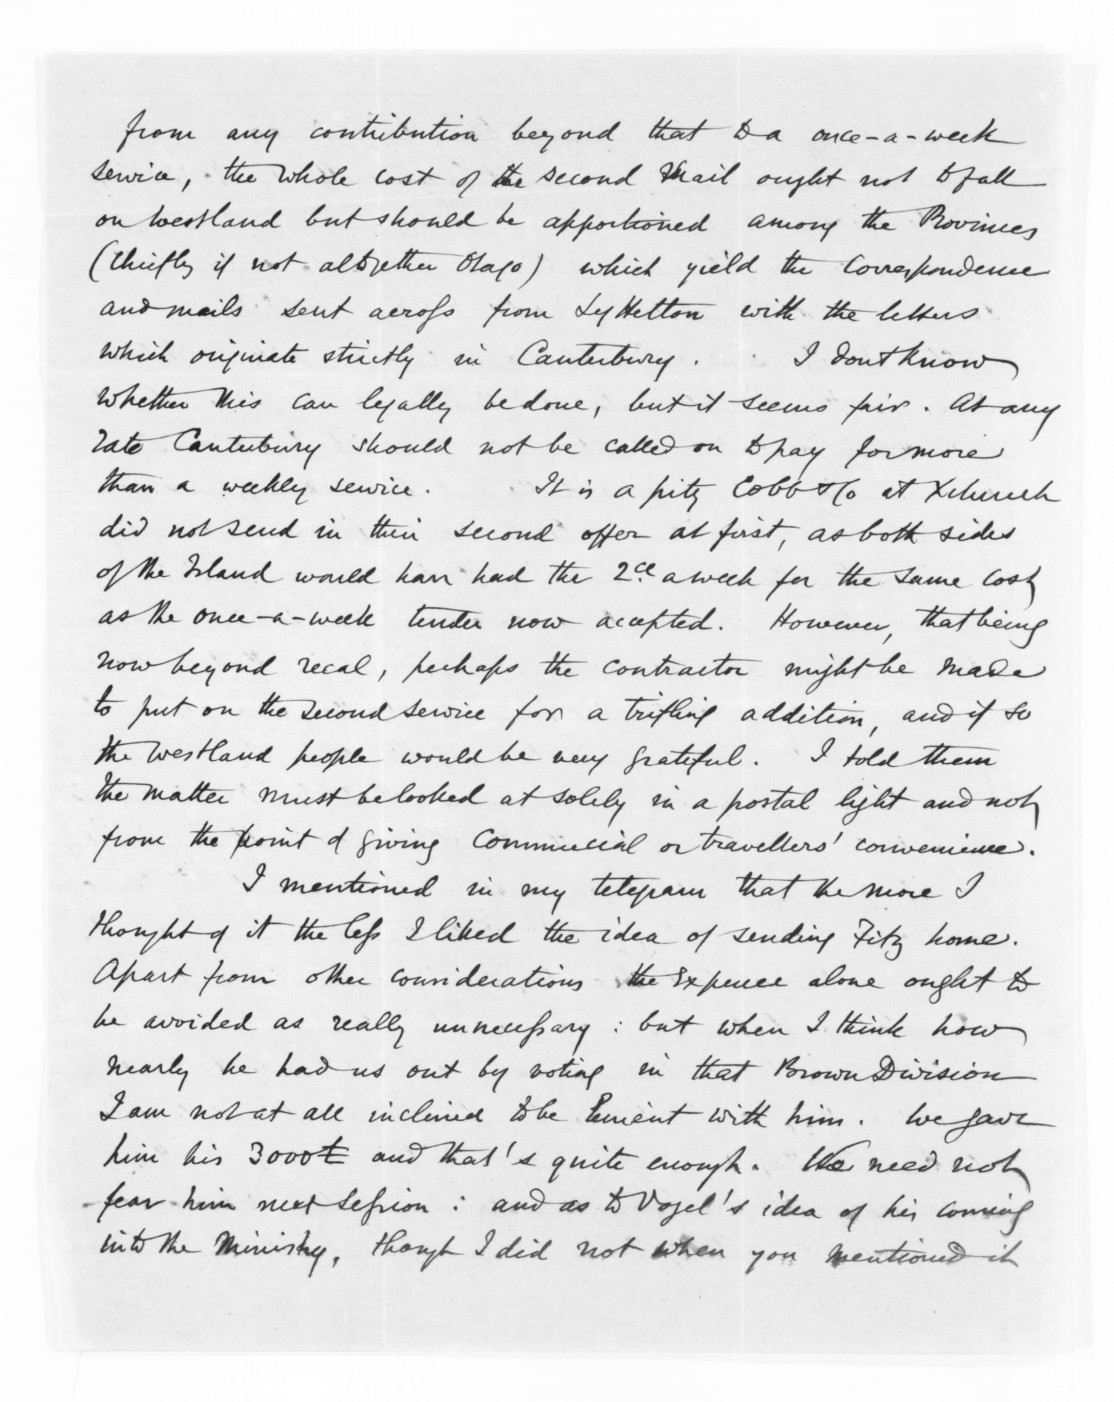 from any contribution beyond that to a once-a-week
service, the whole cost of the second Mail ought not to fall
on Westland but should be apportioned among the Provinces
(chiefly if not altogether Otago) which yield the correspondence
and mails sent across from Lyttelton with the letters
which originate strictly in Canterbury. I dont know
whether this can legally be done, but it seems fair. At any
rate Canterbury should not be called on to pay for more
than a weekly service. It is a pity Cobb & Co at Xchurch
did not send in their second offer at first, as both sides
of the Island would have had the 2ce a week for the same cost
as the once-a-week tender now accepted. However, that being
now beyond recal, perhaps the contractor might be made
to put on the second service for a trifling addition, and if so
the Westland people would be very grateful. I told them
the matter must be looked at solely in a postal light and not
from the point of giving commercial or travellers' convenience.
I mentioned in my telegram that the more I
thought of it the less I liked the idea of sending Fitz home.
Apart from other considerations the expence alone ought to
be avoided as really unnecessary: but when I think how
nearly he had us out by voting in that Brown Division
I am not at all inclined to be lenient with him. We gave
him his 3000£ and that's quite enough. We need not
fear him next session: and as to Vogel's idea of his coming
into the Ministry, though I did not when you mentioned it